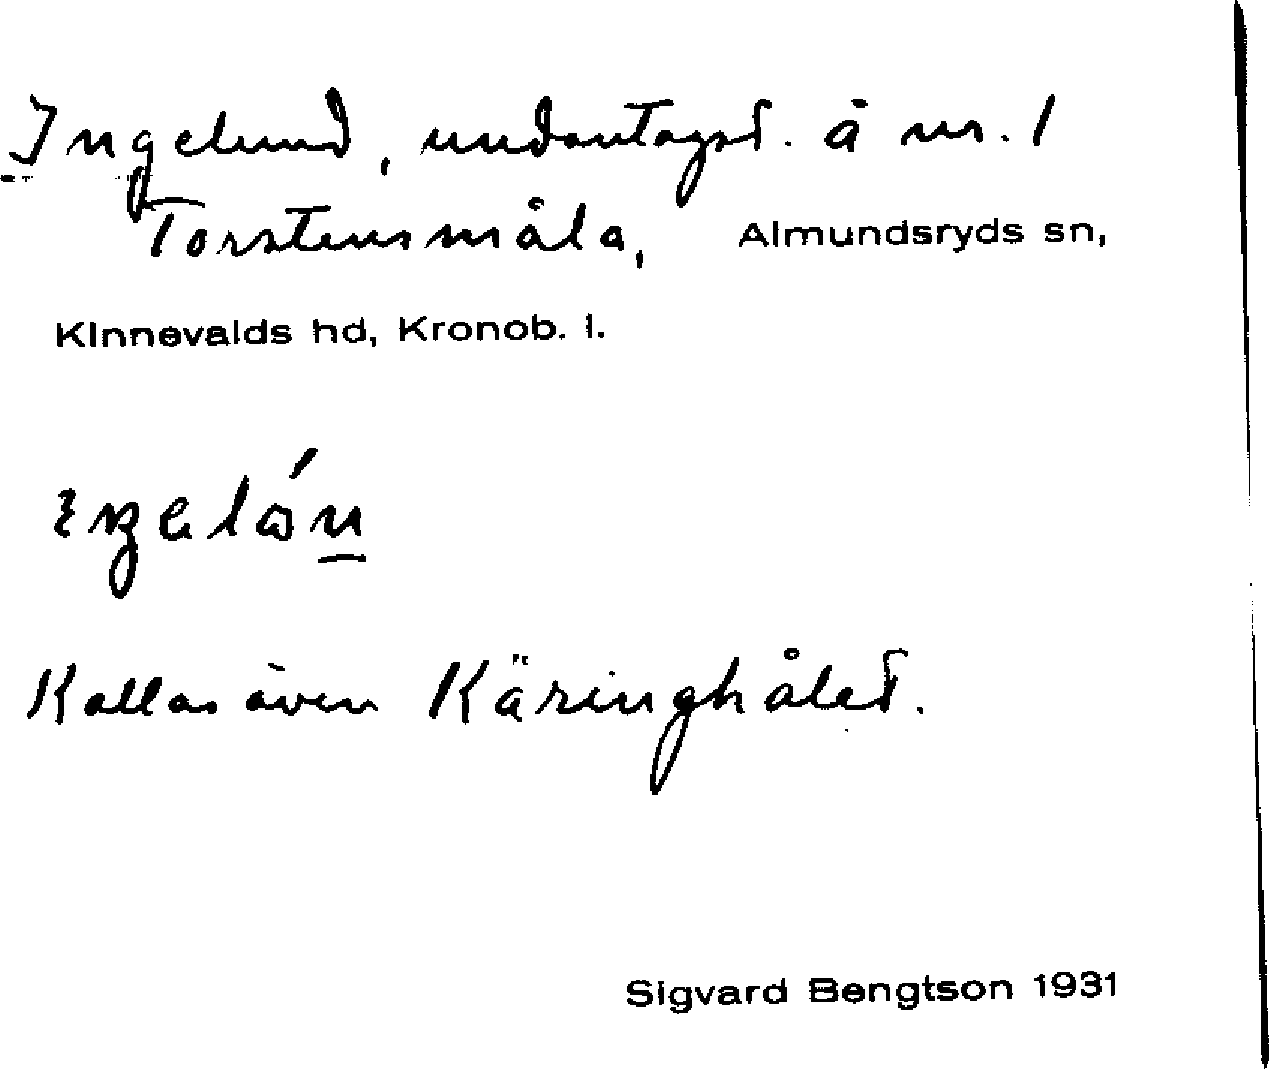 Ingelund, undantagst. å nr. 1
Torstensmåla, Almundsryds sn,
Kinnevalds hd, Kronob. l.
Kallas även Käringhålet.
Sigvard Bengtson 1931